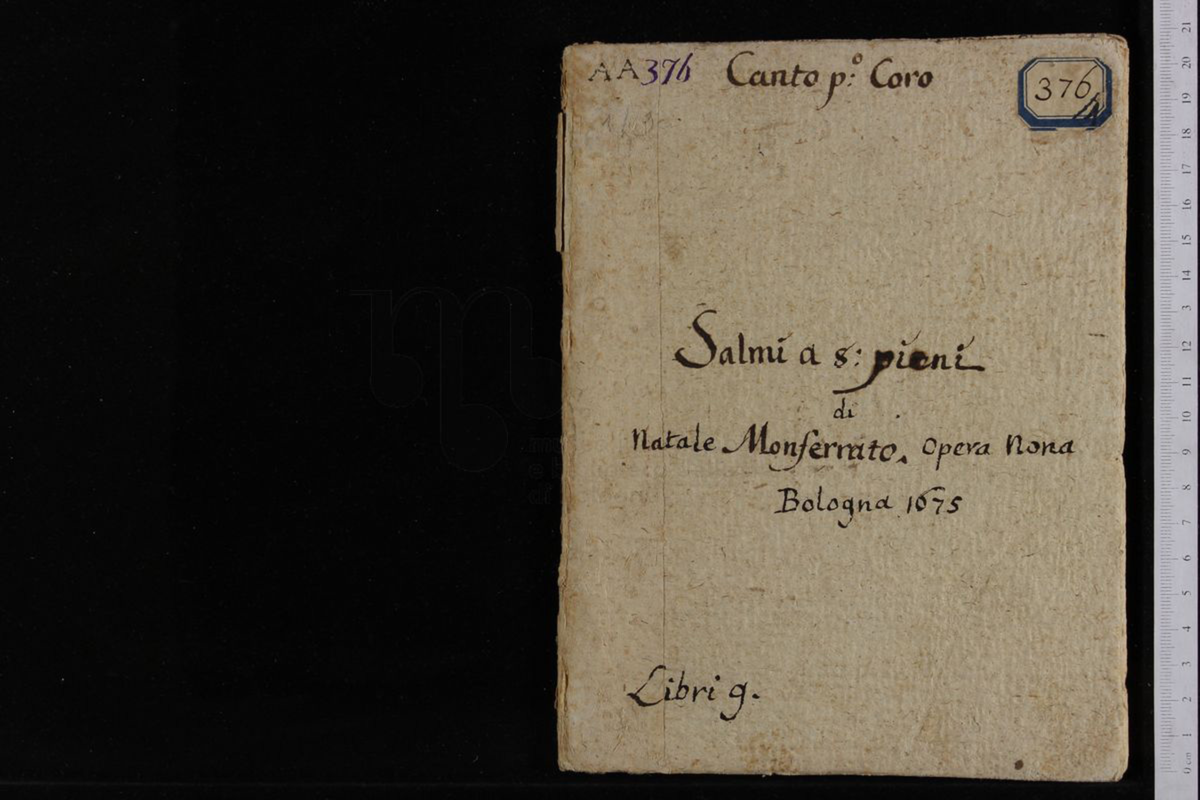 AA376 Canto p:º Coro
376
Salmi a 8: pieni
di
Natale Monferrato. Opera Nona
Bologna 1675
Libri 9.
0 cm 1 2 3 4 5 6 7 8 9 10 11 12 3 14 15 16 17 18 19 20 21